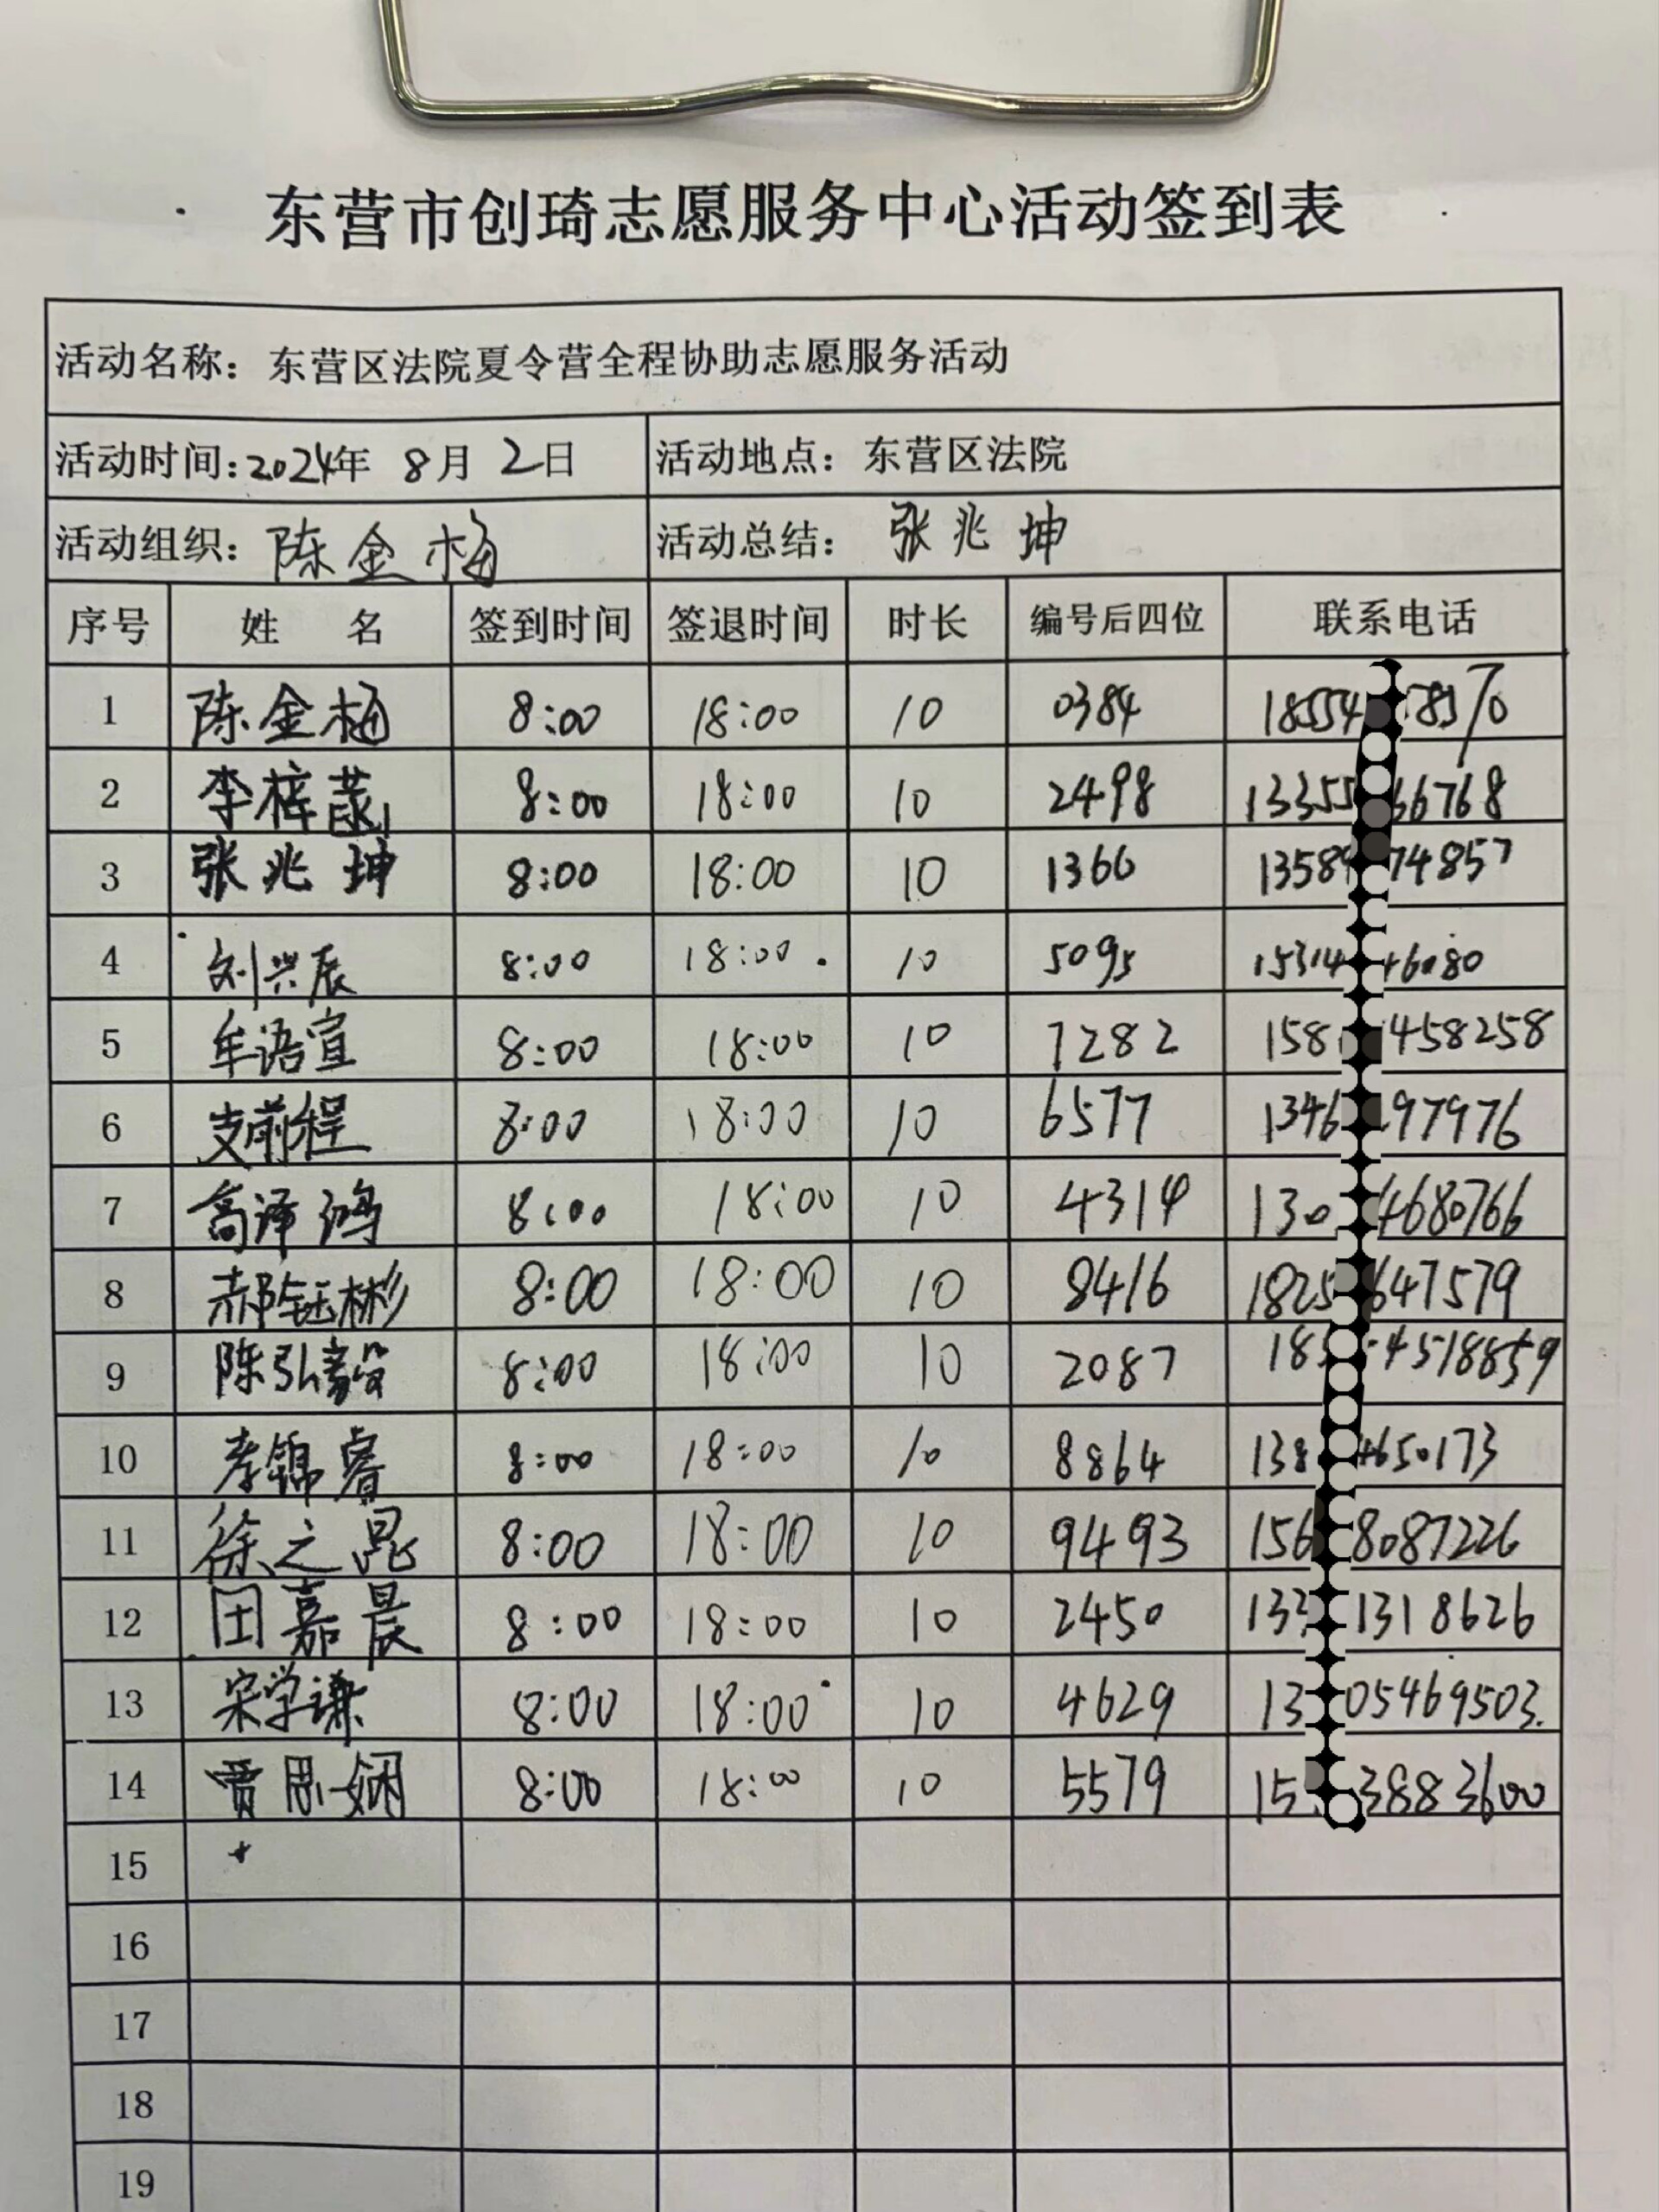 东营市创琦志愿服务中心活动签到表
活动名称：东营区法院夏令营全程协助志愿服务活动
活动时间：2024年 8月 2日 活动地点：东营区法院
活动组织：陈金梅 活动总结：张兆坤
序号 姓 名 签到时间 签退时间 时长 编号后四位 联系电话
1 陈金梅 8:00 18:00 10 0384 18554
2 李梓菉 8:00 18:00 10 2498 13355 66768
3 张兆坤 8:00 18:00 10 1366 13589 74857
4 刘兴辰 8:00 18:00 10 5095 15314 46080
5 牟语宣 8:00 18:00 10 7282 158 458258
6 支前程 8:00 18:00 10 6577 1346 97976
7 高泽鸿 8:00 18:00 10 4314 130 4680766
8 郝钰彬 8:00 18:00 10 8416 1825 647579
9 陈弘毅 8:00 18:00 10 2087 185 4518859
10 李锦睿 8:00 18:00 10 8864 138 4650173
11 徐之晁 8:00 18:00 10 9493 156 8087226
12 田嘉晨 8:00 18:00 10 2450 133 1318626
13 宋学谦 8:00 18:00 10 4629 13 05469503
14 贾思娴 8:00 18:00 10 5579 15 3883600
15
16
17
18
19